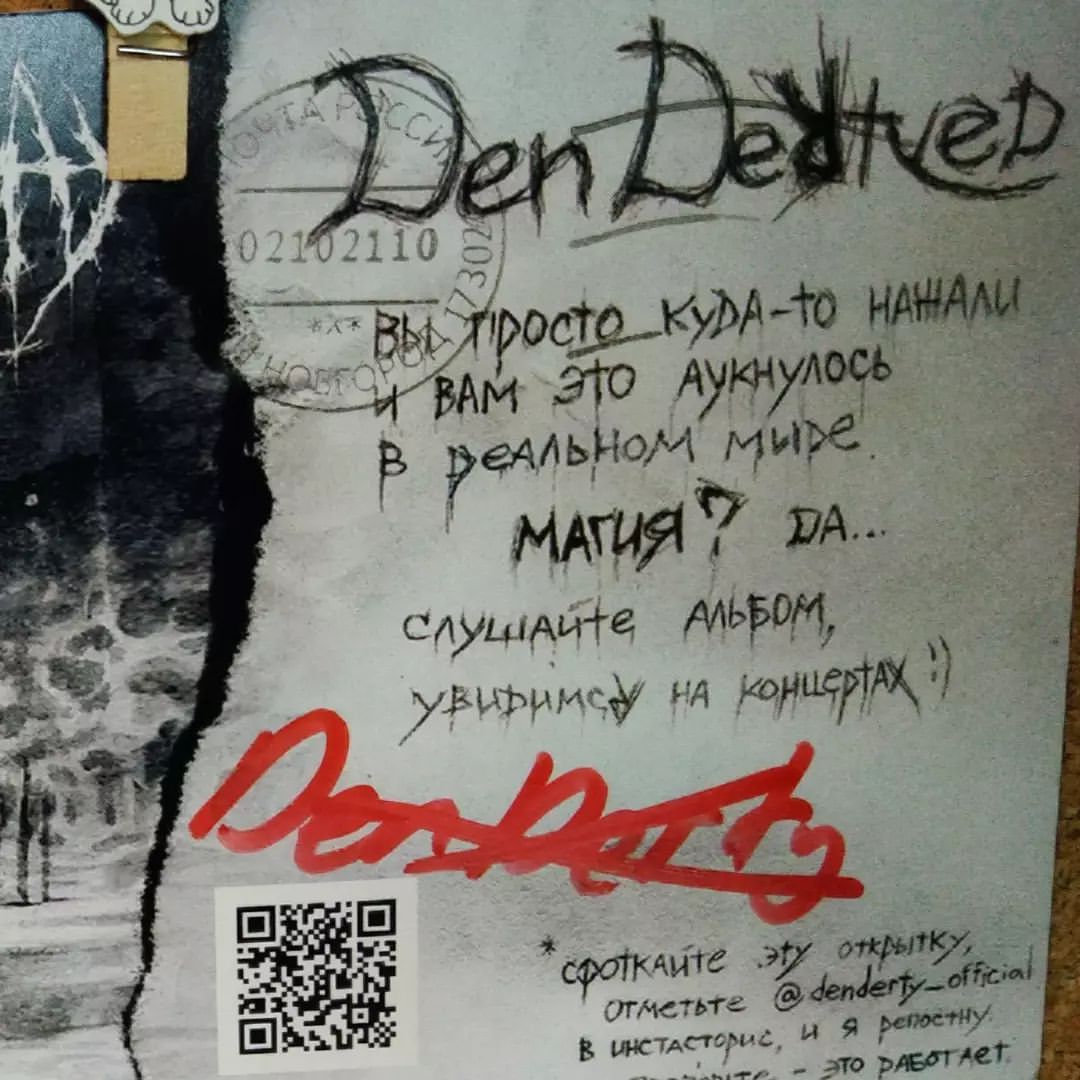 Den DeяtveD
ПОЧТА РОССИИ
02102110
Вы просто куда-то нажали
и вам это аукнулось
в реальном мире.
МАГИЯ? DA...
слушайте альбом,
увиDимся на концертах :)
Den Derty
*сфоткайте эту открытку,
отметьте @denderty_official
в инстасторис, и я репостну.
- это работает.